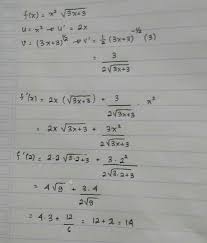 f(x) = x² √3x+3
u = x² → u' = 2x
v = (3x+3)^½ → v' = ½ (3x+3)^-½ (3)
= 3 / 2√3x+3
f'(x) = 2x (√3x+3) + 3 / 2√3x+3 · x²
= 2x √3x+3 + 3x² / 2√3x+3
f'(2) = 2·2 √3·2+3 + 3·2² / 2√3·2+3
= 4√9 + 3·4 / 2√9
= 4·3 + 12/6 = 12+2 = 14